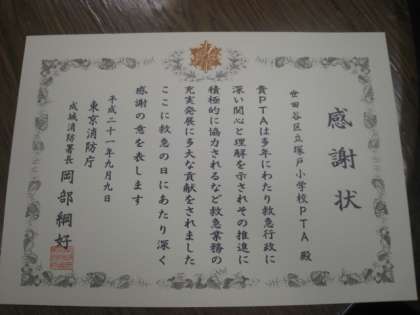 感謝状
世田谷区立塚戸小学校PTA 殿
貴PTAは多年にわたり救急行政に
深い関心と理解を示されその推進に
積極的に協力されるなど救急業務の
充実発展に多大な貢献をされました
ここに救急の日にあたり深く
感謝の意を表します
平成二十一年九月九日
東京消防庁
成城消防署長 岡部綱好